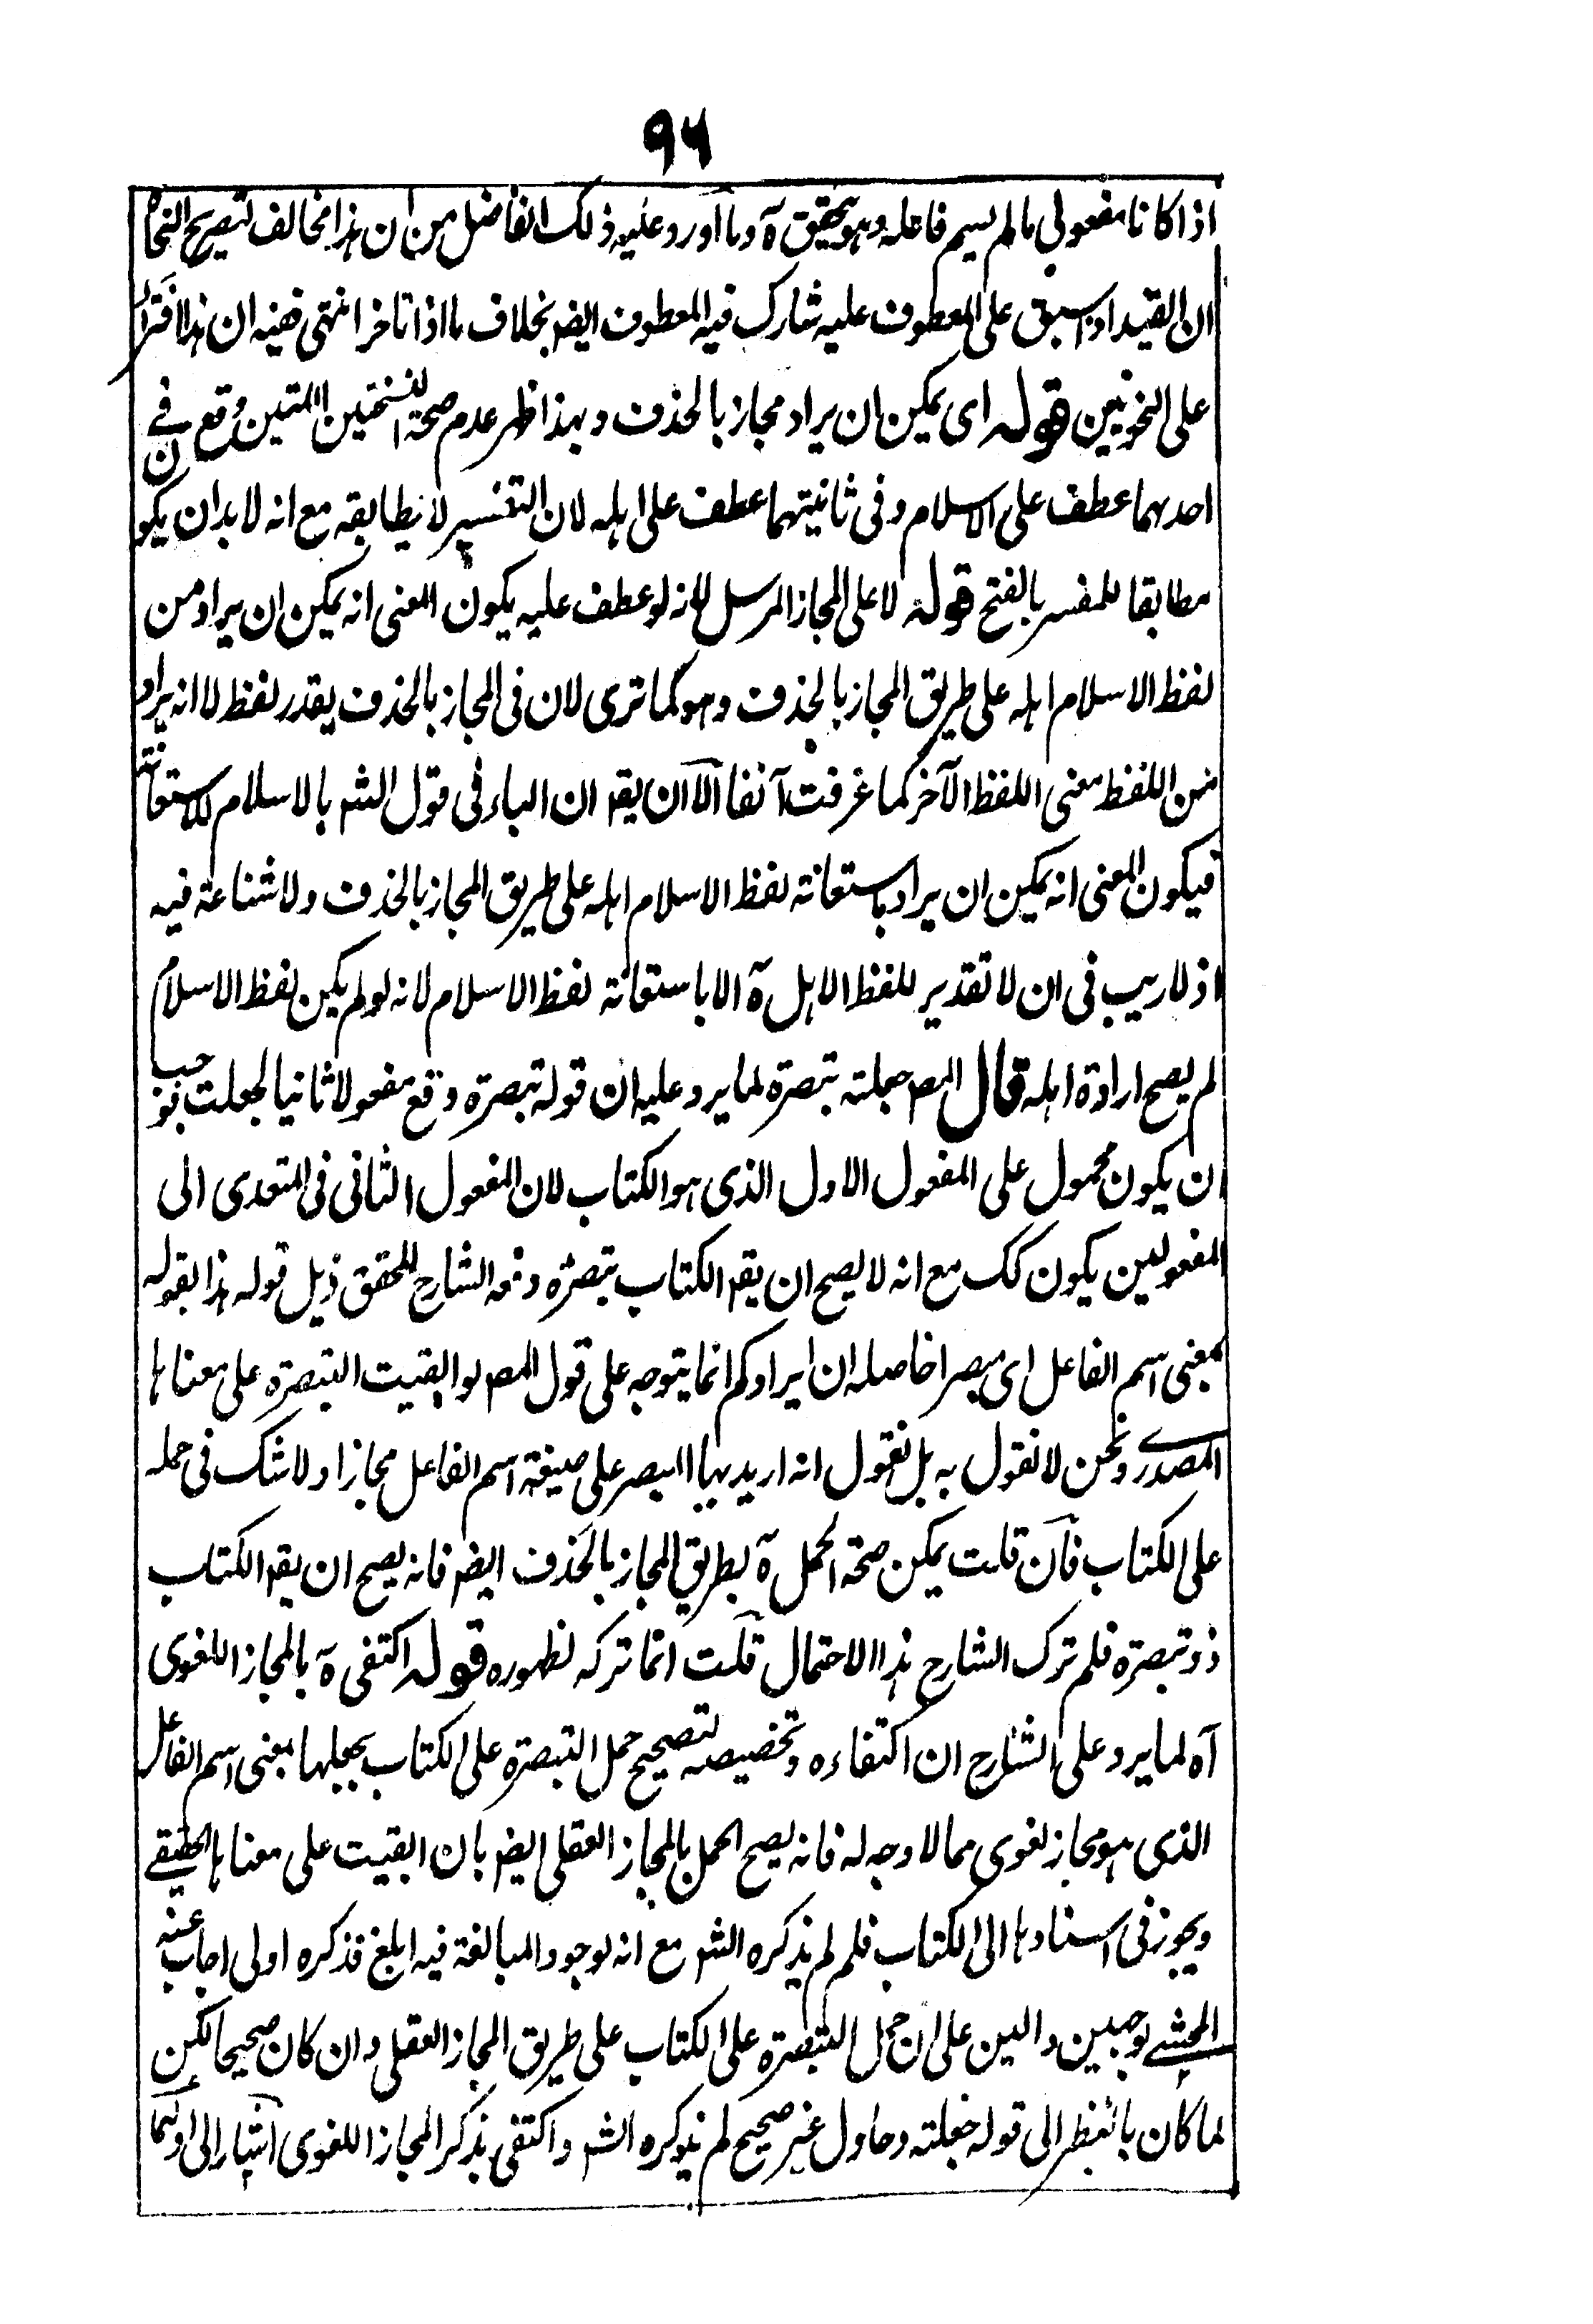 ٩٦
اذا كانا مفعولى مالم يسم فاعله وهو تحقيق ه وما اورد عليه ذلك الفاضل من ان هذا مخالف لتصريح النحاة
ان القيد اذا سبق على المعطوف عليه شارك فيه المعطوف ايضا بخلاف ما اذا تاخر انتهى ففيه ان هذا افتراء
على النحويين قوله اى يمكن ان يراد مجاز بالحذف وبهذا ظهر عدم صحة النسختين اللتين وقع فى
احدهما عطف على الاسلام وفى ثانيتهما عطف على اهله لان التفسير لا يطابقه مع انه لا بد ان يكون
مطابقا للمفسر بالفتح قوله لا على المجاز المرسل لانه لو عطف عليه يكون المعنى انه يمكن ان يراد من
لفظ الاسلام اهله على طريق المجاز بالحذف وهو كما ترى لان فى المجاز بالحذف يقدر لفظ لا انه يراد
من اللفظ معنى اللفظ الآخر كما عرفت آنفا الا ان يقه ان الباء فى قول الشه بالاسلام للاستعانة
فيكون المعنى انه يمكن ان يراد باستعانة لفظ الاسلام اهله على طريق المجاز بالحذف ولا شناعة فيه
اذ لا ريب فى ان لا تقدير للفظ الاهل ه الا باستعانة لفظ الاسلام لانه لو لم يكن لفظ الاسلام
لم يصح ارادة اهله قال المصه جعلته تبصرة لما يرد عليه ان قوله تبصرة وقع مفعولا ثانيا لجعلت فوجب
ان يكون محمول على المفعول الاول الذى هو الكتاب لان المفعول الثانى فى المتعدى الى
المفعولين يكون كك مع انه لا يصح ان يقه الكتاب تبصرة دفعه الشارح المحقق ذيل قوله هذا بقوله
بمعنى اسم الفاعل اى مبصرا حاصله ان ايرادكم انما يتوجه على قول المصه لو ابقيت التبصرة على معناها
المصدرى ونحن لا نقول به بل نقول انه اريد بها المبصر على صيغة اسم الفاعل مجازا ولا شك فى حمله
على الكتاب فان قلت يمكن صحة الحمل ه بطريق المجاز بالحذف ايضا فانه يصح ان يقه الكتاب
ذو تبصرة فلم ترك الشارح هذا الاحتمال قلت انما تركه لظهوره قوله اكتفى ه بالمجاز اللغوى
آه لما يرد على الشارح ان اكتفاءه وتخصيصه لتصحيح حمل التبصرة على الكتاب بجعلها بمعنى اسم الفاعل
الذى هو مجاز لغوى مما لا وجه له فانه يصح الحمل بالمجاز العقلى ايضا بان ابقيت على معناها الحقيقى
ويجوز فى اسنادها الى الكتاب فلم لم يذكره الشه مع انه لوجود المبالغة فيه ابلغ فذكره اولى اجاب عنه
المحشى بوجهين دالين على ان حمل التبصرة على الكتاب على طريق المجاز العقلى وان كان صحيحا لكن
لما كان بالنظر الى قوله جعلته وحاول غير صحيح لم يذكره الشه واكتفى بذكر المجاز اللغوى اشار الى اولهما